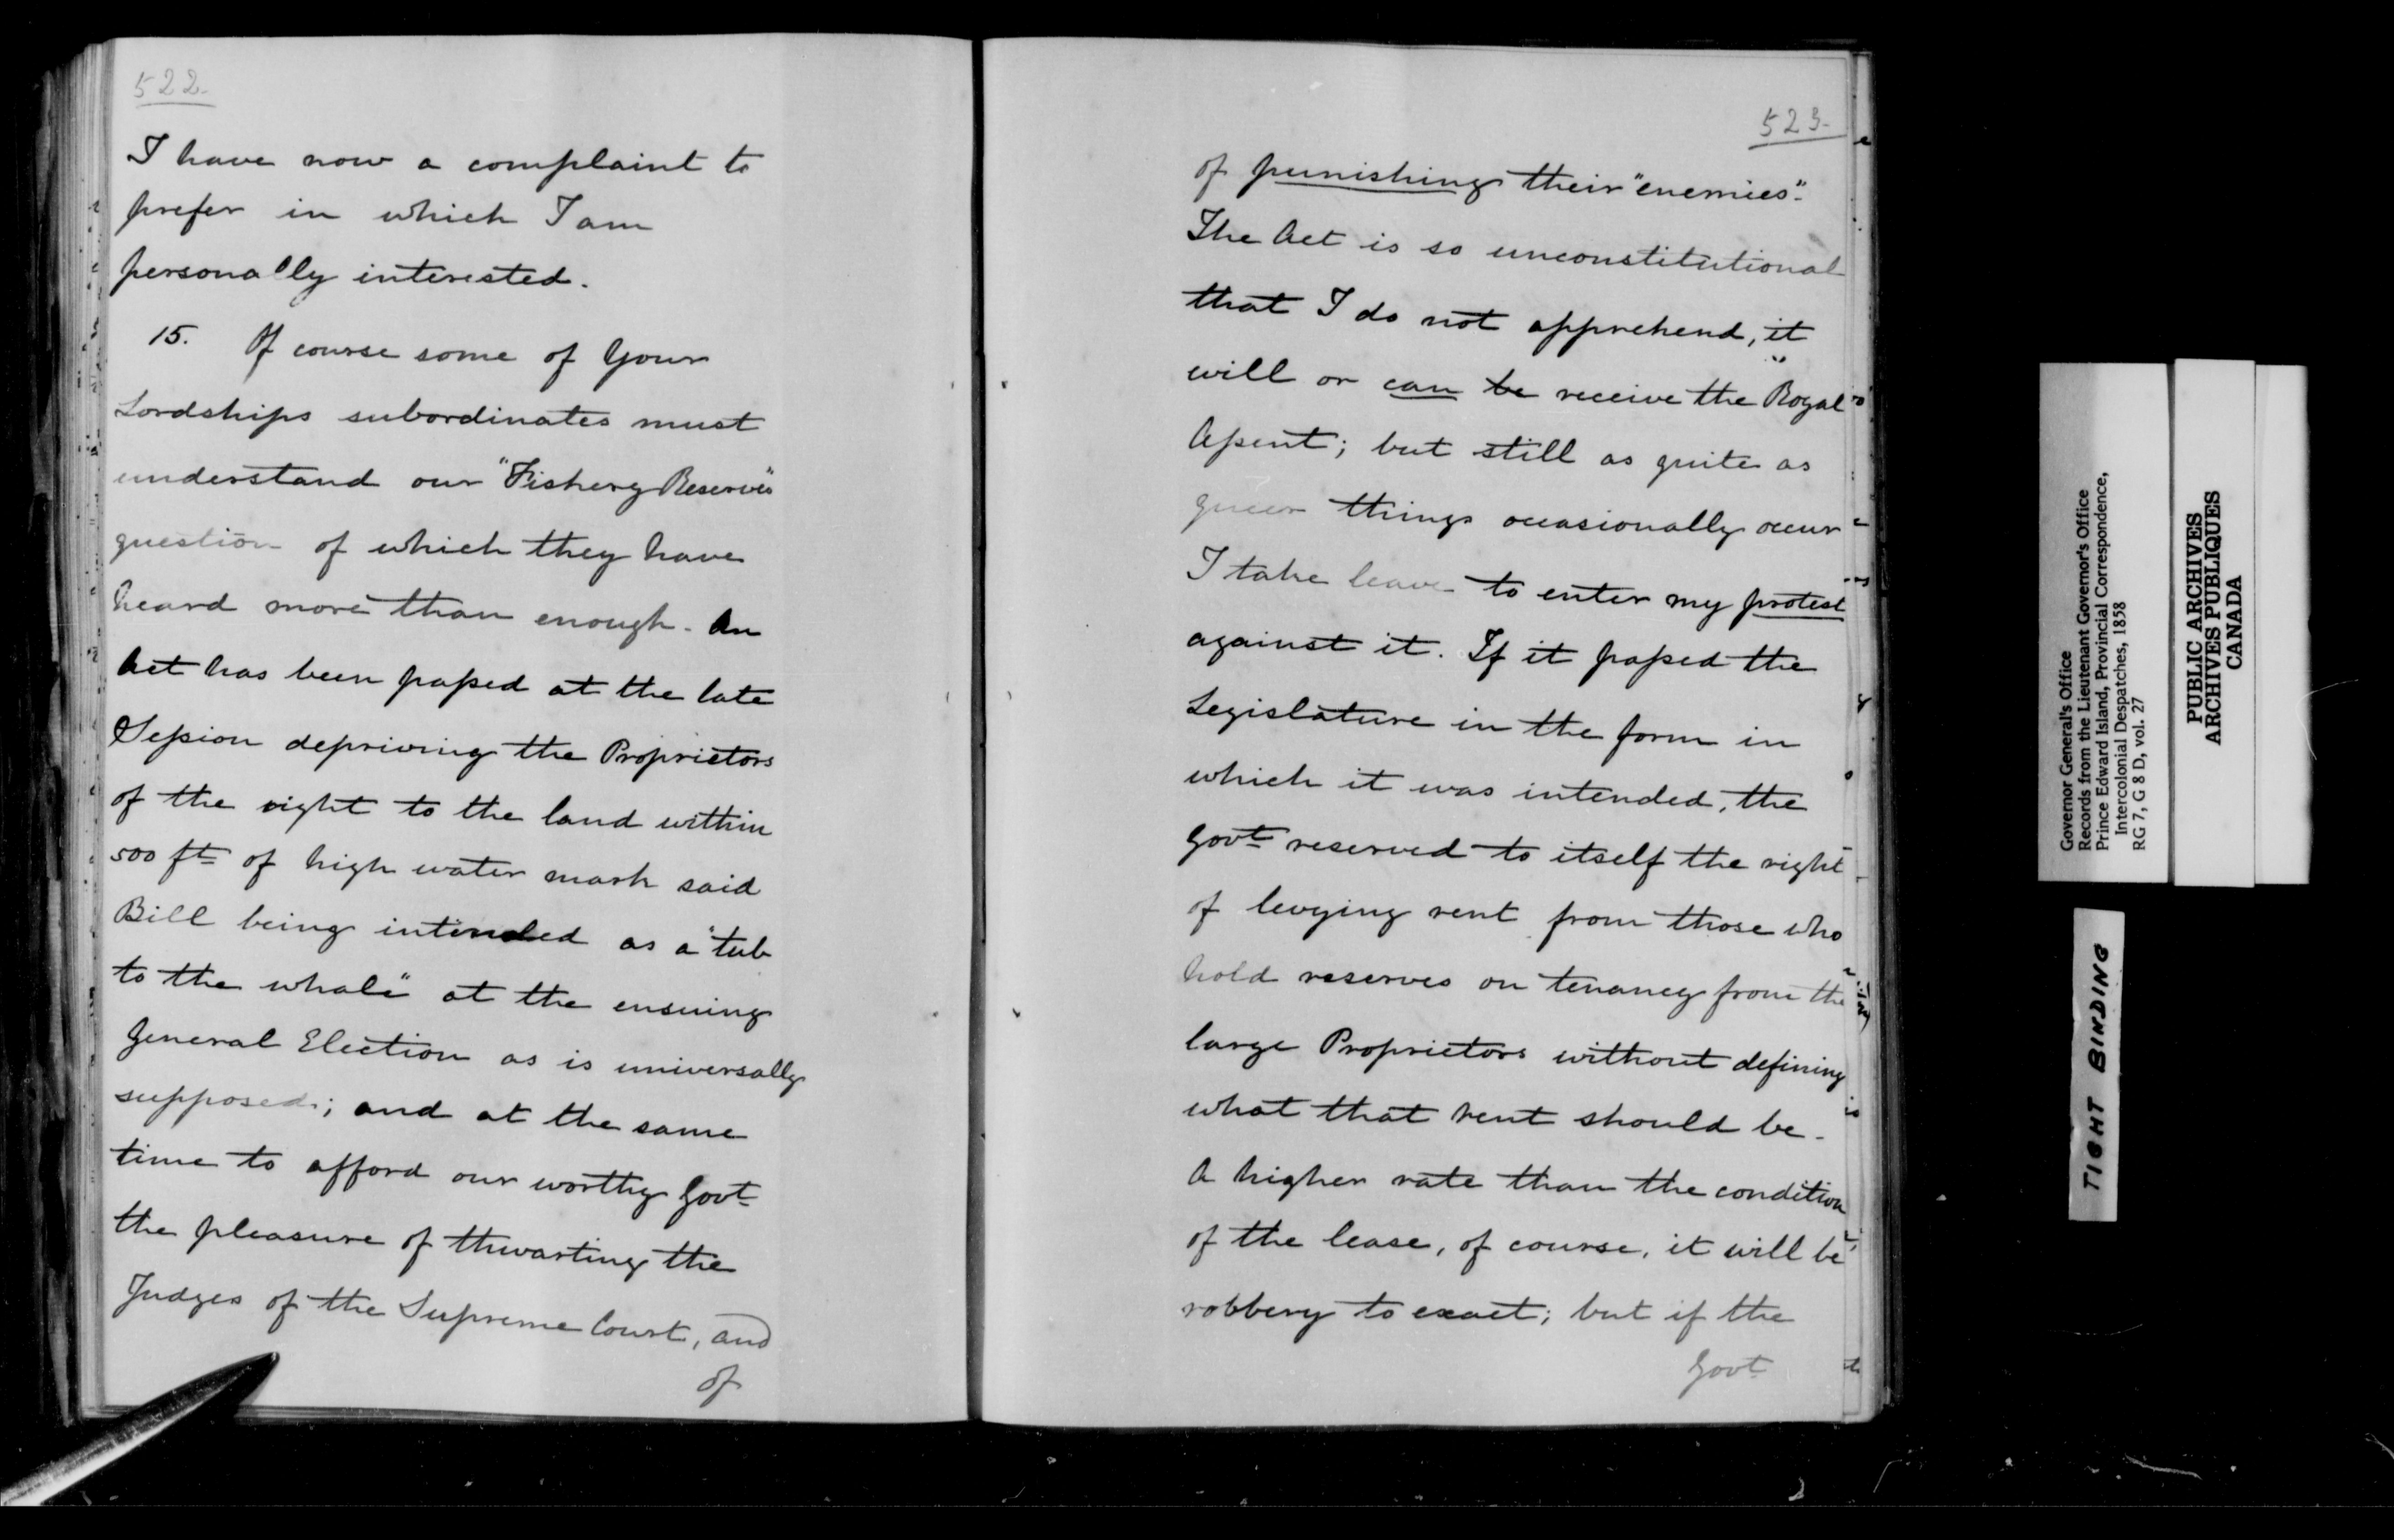 522.
I have now a complaint to
prefer in which I am
personally interested.
15. Of course some of Your
Lordships subordinates must
understand our "Fishery Reserves"
question of which they have
heard more than enough. An
Act has been passed at the late
Session depriving the Proprietors
of the right to the land within
500 ft of high water mark said
Bill being intended as a "tub
to the whale" at the ensuing
General Election as is universally
supposed; and at the same
time to afford our worthy Govt
the pleasure of thwarting the
Judges of the Supreme Court, and
of
523.
of punishing their "enemies".
The Act is so unconstitutional
that I do not apprehend, it
will or can be receive the Royal
Assent; but still as quite as
queer things occasionally occur
I take leave to enter my protest
against it. If it passed the
Legislature in the form in
which it was intended, the
Govt reserved to itself the right
of levying rent from those who
hold reserves on tenancy from the
large Proprietors without defining
what that rent should be.
A higher rate than the condition
of the lease, of course, it will be
robbery to exact; but if the
Govt
Governor General's Office
Records from the Lieutenant Governor's Office
Prince Edward Island, Provincial Correspondence,
Intercolonial Despatches, 1858
RG 7, G 8 D, vol. 27
PUBLIC ARCHIVES
ARCHIVES PUBLIQUES
CANADA
TIGHT BINDING